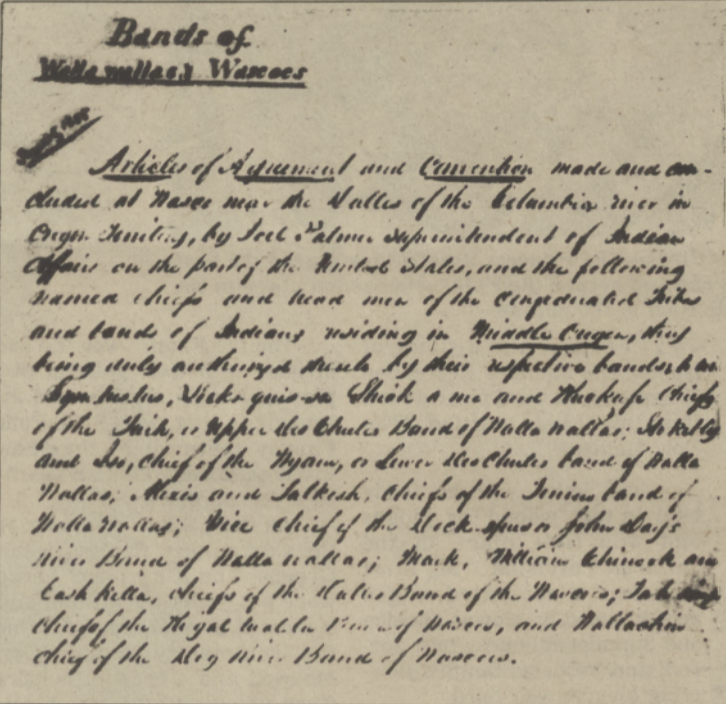 Bands of
Walla wallas & Wascoes
Articles of Agreement and Convention made and con-
cluded at Wasco near the Dalles of the Columbia river in
Oregon Territory, by Joel Palmer Superintendent of Indian
Affairs on the part of the United States, and the following
named chiefs and head men of the Confederated Tribes
and bands of Indians residing in Middle Oregon, they
being duly authorized thereto by their respective bands,
and Chiefs
of the Taih, or Upper Des Chutes Band of Walla wallas;
and Iso, Chief of the Wyam, or Lower Des Chutes band of Walla
Wallas; Alexis and Talkish, Chiefs of the Tenino band of
Walla Wallas; Yice Chief of the Dock-spus or John Day's
river Band of Walla wallas; Mark, William Chinook and
Cush Kella, Chiefs of the Dalles Band of the Wascoes;
Chief of the of Wascoes, and Wallachin
chief of the Dog river Band of Wascoes.